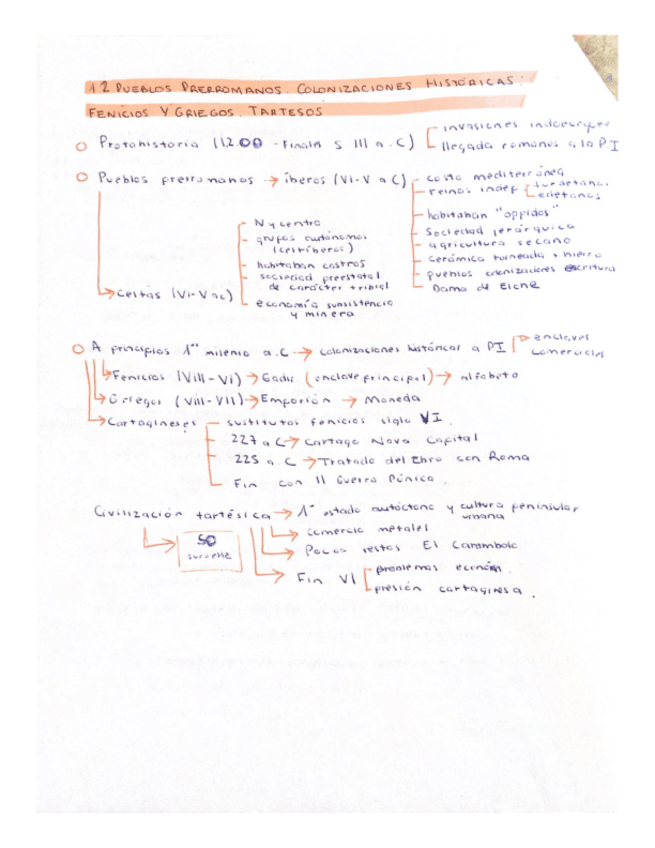 1.2 PUEBLOS PRERROMANOS. COLONIZACIONES HISTÓRICAS:
FENICIOS Y GRIEGOS. TARTESOS
Protohistoria (1200 - Finales S III a.C)
invasiones indoeuropeas
llegada romanos a la PI
Pueblos prerromanos → íberos (VI-V a C)
costa mediterránea
reinos indep
turdetanos
edetanos
habitaban "oppidos"
Sociedad jerárquica
agricultura secano
cerámica torneada + hierro
pueblos colonizadores escritura
Dama de Elche
→ Celtas (VI-V ac)
N y centro
grupos autónomos
(celtíberos)
habitaban castros
sociedad preestatal
de carácter tribal
economía subsistencia
y minera
A principios 1er milenio a.C → colonizaciones históricas a PI
enclaves
comerciales
→ Fenicios (VIII - VI) → Gadir (enclave principal) → alfabeto
→ Griegos (VIII - VII) → Emporion → Moneda
→ Cartagineses
sustitutos fenicios siglo VI.
227 a C → Cartago Nova Capital
225 a. C → Tratado del Ebro con Roma
Fin con II Guerra Púnica.
Civilización tartésica → 1er estado autóctono y cultura peninsular
urbana
→ SO
suroeste
→ comercio metales
→ Pocos restos El Carambolo
→ Fin VI
problemas económ.
presión cartaginesa.